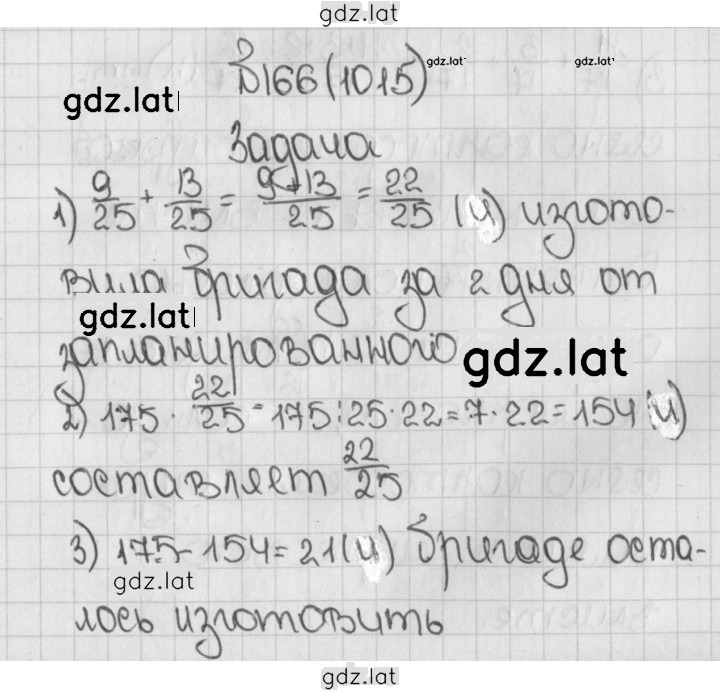 gdz.lat
№166(1015) gdz.lat gdz.lat
gdz.lat
Задача
1) 9/25 + 13/25 = 9+13/25 = 22/25 (ч) изгото-
вила бригада за 2 дня от
gdz.lat
запланированного
gdz.lat
2) 175 · 22/25 = 175:25·22=7·22=154 (ч)
составляет 22/25
3) 175-154=21(ч) бригаде оста-
gdz.lat
лось изготовить
gdz.lat